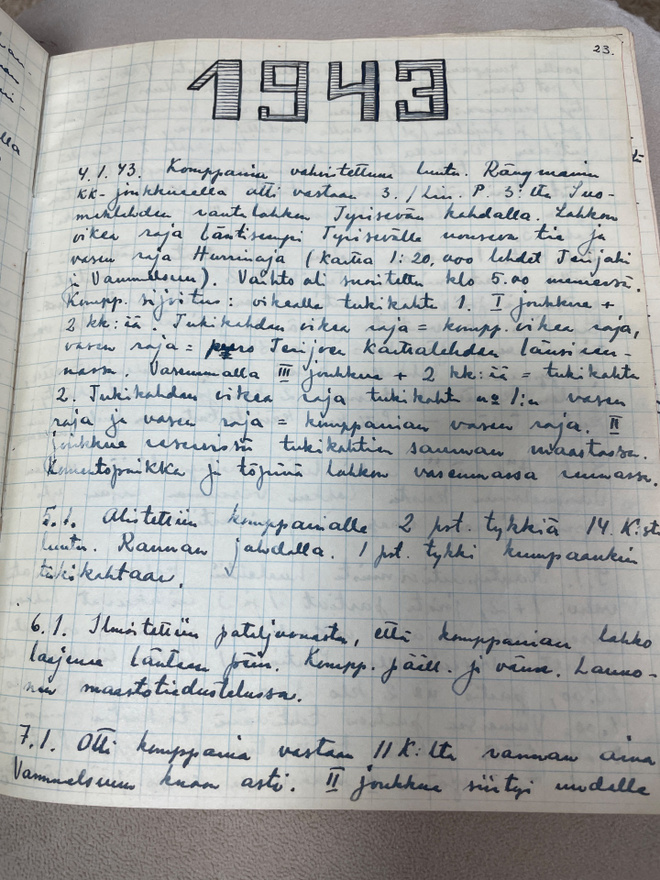 23.
1943
4.1.43. Komppania vahvistettuna luutn. Rängmanin
KK-joukkueella otti vastaan 3./Lin. P. 3:lta Suo-
menlahden rantalohkon Tyrisevän kohdalla. Lohkon
oikea raja läntisempi Tyrisevälle nouseva tie ja
vasen raja Hurrinoja (kartta 1:20,000 lehdet Terijoki
ja Vammelsuu). Vaihto oli suoritettu klo 5.00 mennessä.
Kompp. sijoitus: oikealla tukikohta 1. I joukkue +
2 kk:ää. Tukikohdan oikea raja = kompp. oikea raja,
vasen raja = Terijoen karttalehden länsireu-
nassa. Vasemmalla III joukkue + 2 kk:ää = tukikohta
2. Tukikohdan oikea raja tukikohta no 1:n vasen
raja ja vasen raja = komppanian vasen raja. II
joukkue reservissä tukikohtien sauman maastossa.
Komentopaikka ja töpinä lohkon vasemmassa reunassa.
5.1. Alistettiin komppanialle 2 pst. tykkiä 14. K:sta
luutn. Rannan johdolla. 1 pst. tykki kumpaankin
tukikohtaan.
6.1. Ilmoitettiin pataljoonasta, että komppanian lohko
laajenee länteen päin. Kompp. pääll. ja vänr.
maastotiedustelussa.
7.1. Otti komppania vastaan 11 K:lta rannan aina
Vammelsuun asti. II joukkue siirtyi uudelle